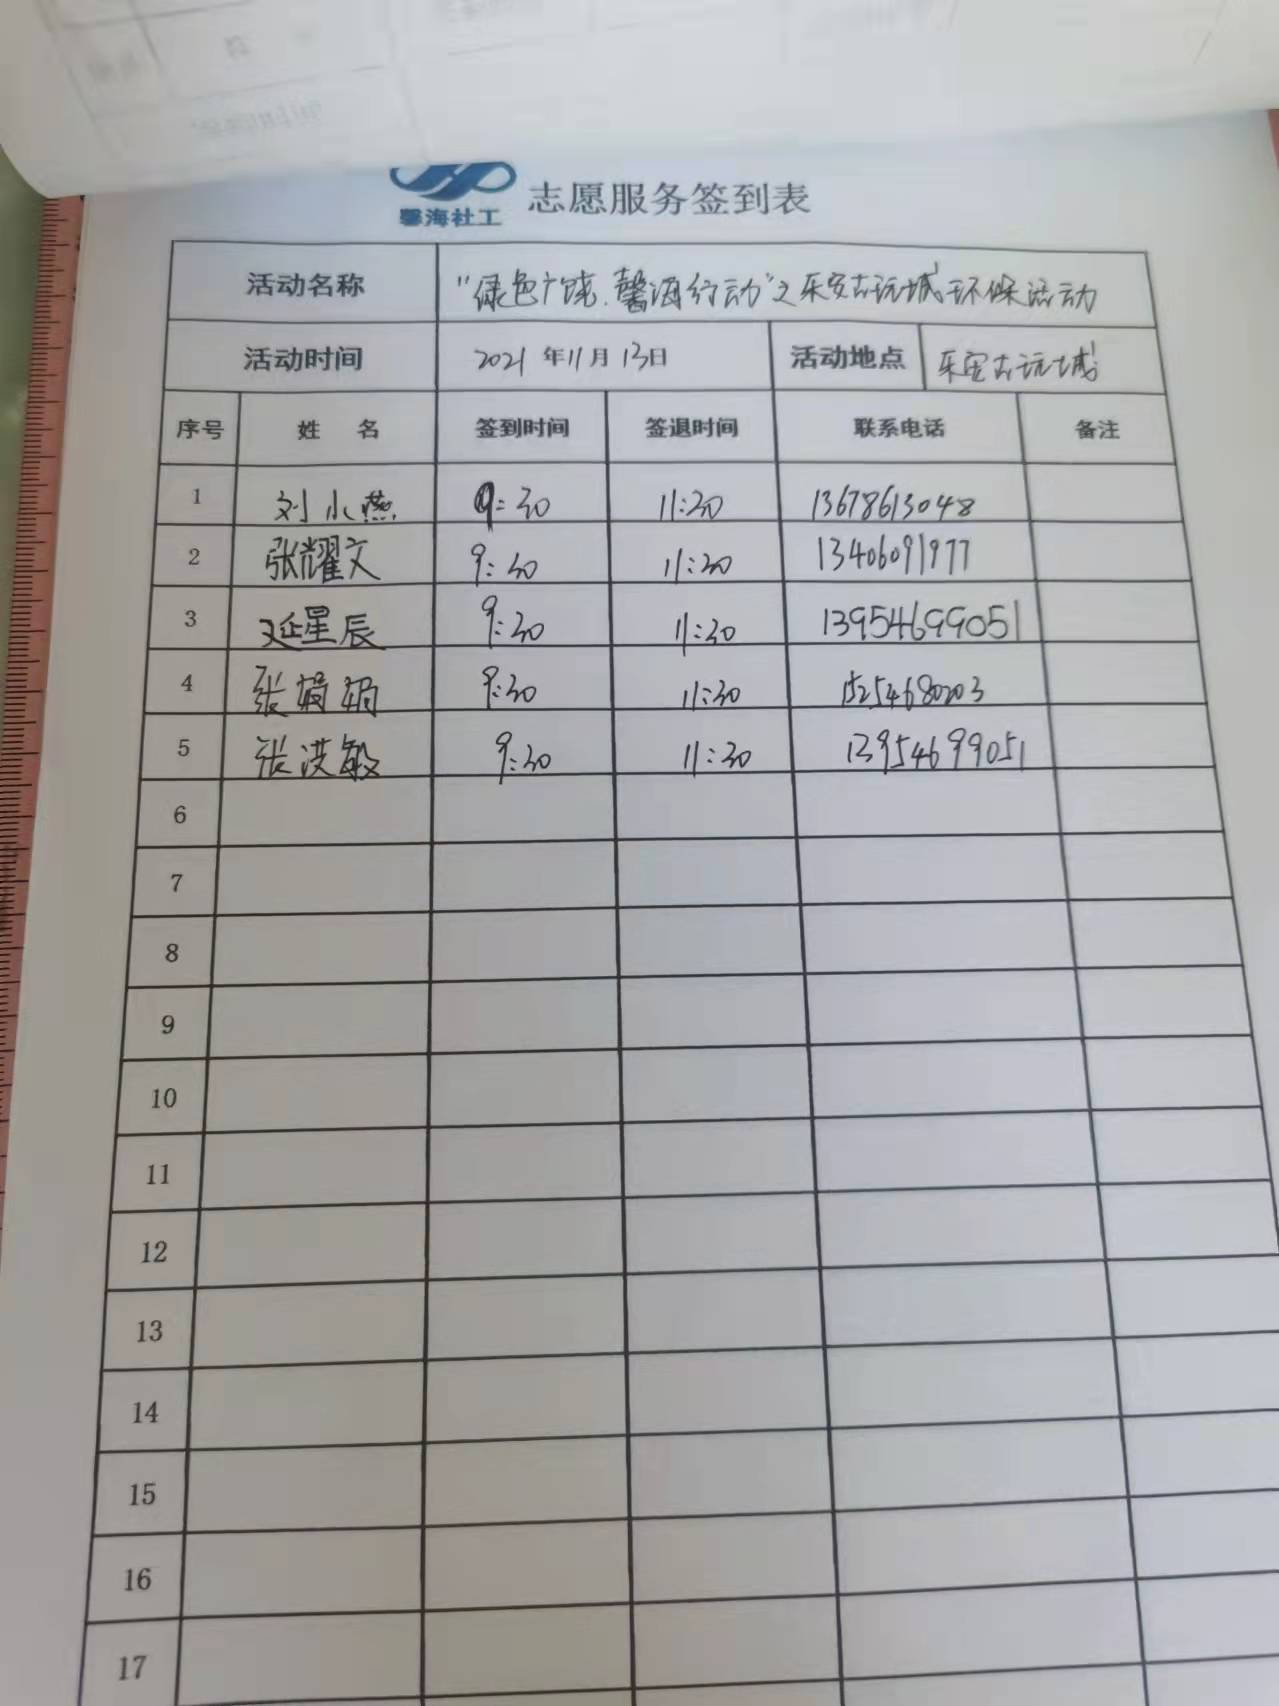 馨海社工 志愿服务签到表
活动名称 “绿色广饶.馨海行动”之乐安古玩城环保活动
活动时间 2021年11月13日 活动地点 乐安古玩城
序号 姓 名 签到时间 签退时间 联系电话 备注
1 刘小燕 9:30 11:30 13678613048
2 张耀文 9:30 11:30 13406091977
3 延星辰 9:30 11:30 13954699051
4 张娟娟 9:30 11:30 15254680203
5 张洪敏 9:30 11:30 13954699051
6
7
8
9
10
11
12
13
14
15
16
17